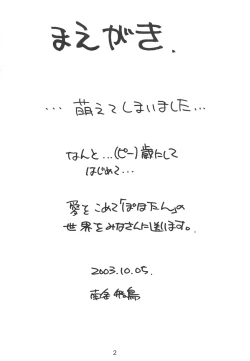 まえがき.
… 萌えてしまいました…
なんと…(ピー)歳にして
はじめて…
愛をこめて「ぽぽたん」の
世界をみなさんに送ります。
2003.10.05.
2